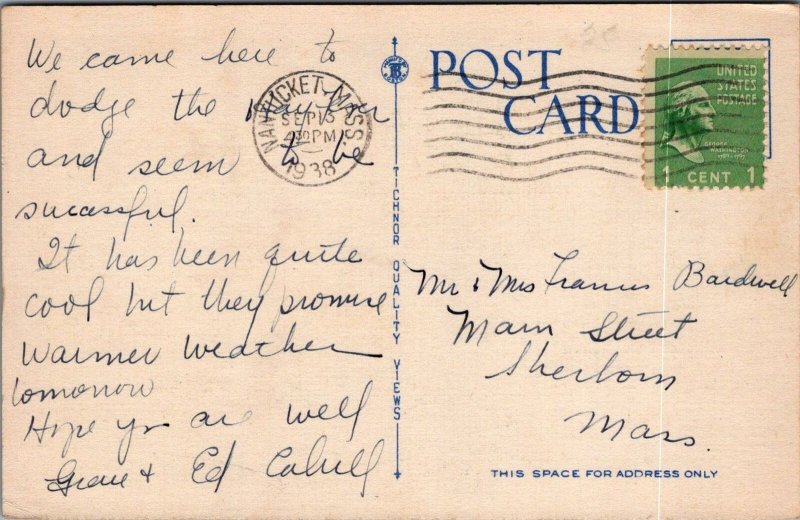 We came here to
dodge the Hay fever
and seem to be
sucessful.
It has been quite
cool but they promise
warmer weather
tomorrow
Hope you are well
Grace & Ed Cahill
NANTUCKET, MASS.
SEP 13
4 30 PM
1938
TICHNOR QUALITY VIEWS
POST CARD
UNITED
STATES
POSTAGE
GEORGE
WASHINGTON
1 CENT 1
Mr & Mrs Francis Bardwell
Main Street
Sherborn
Mass.
THIS SPACE FOR ADDRESS ONLY